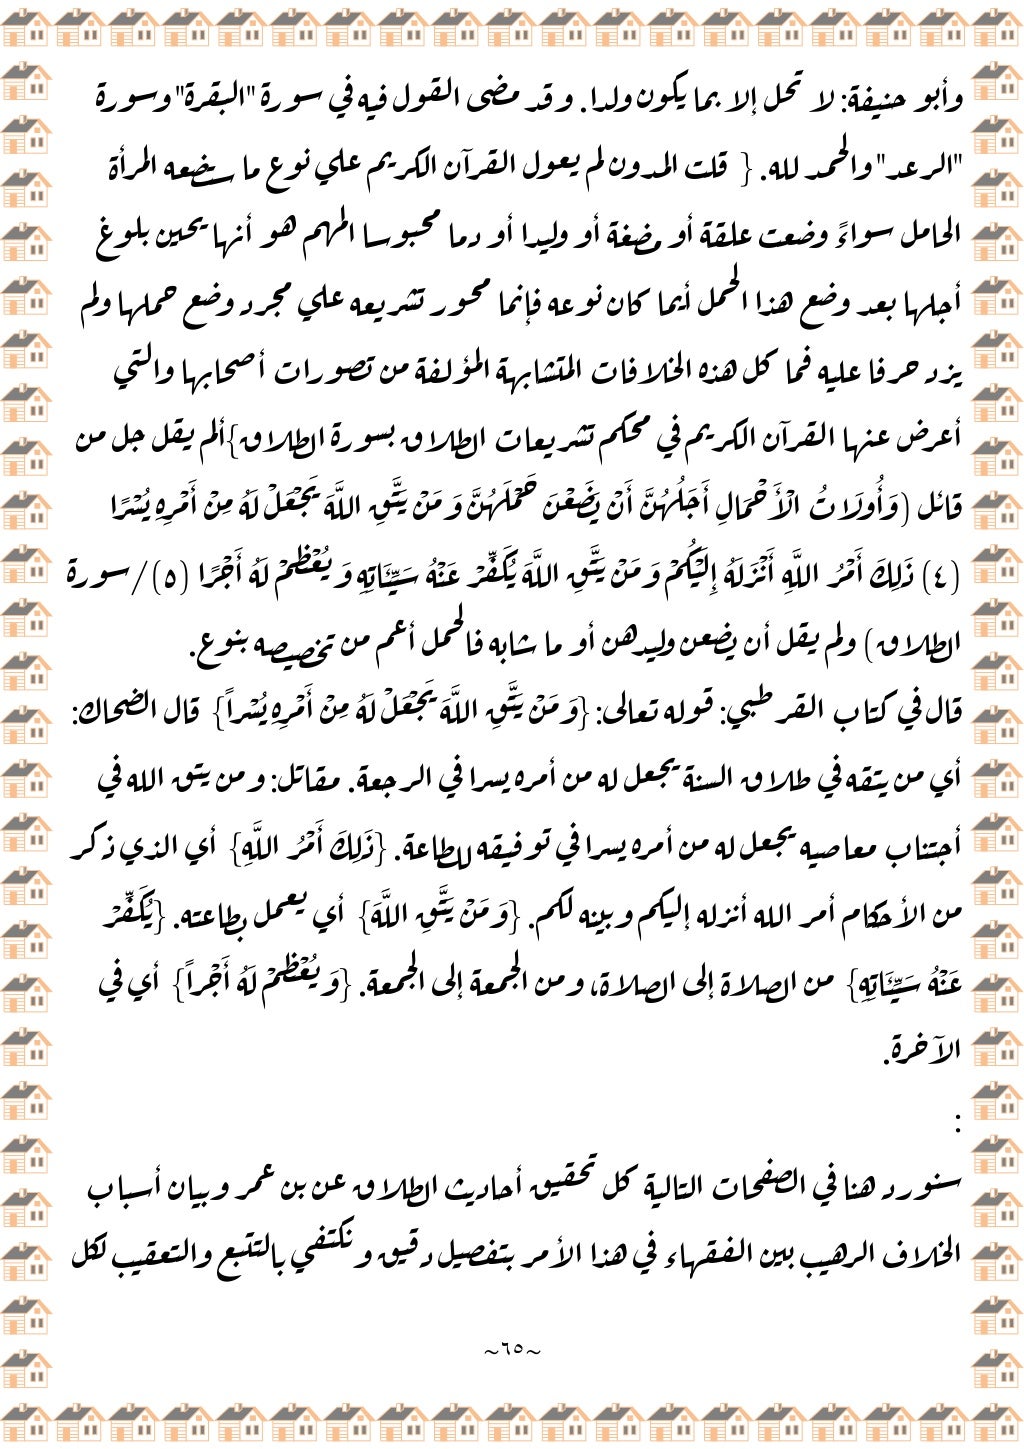 وأبو حنيفة: لا تحل إلا بما يكون ولدا. وقد مضى القول فيه في سورة "البقرة" وسورة
"الرعد" والحمد لله. { قلت المدون لم يعول القرآن الكريم علي نوع ما ستضعه المرأة
الحامل سواءً وضعت علقة أو مضغة أو وليدا أو دما محبوسا المهم هو أنها يحين بلوغ
أجلها بعد وضع هذا الحمل أيما كان نوعه فإنما محور تشريعه علي مجرد وضع حملها ولم
يزد حرفا عليه فما كل هذه الخلافات المتشابهة المؤلفة من تصورات أصحابها والتي
أعرض عنها القرآن الكريم في محكم تشريعات الطلاق بسورة الطلاق}ألم يقل جل من
قائل (وَأُولَاتُ الْأَحْمَالِ أَجَلُهُنَّ أَنْ يَضَعْنَ حَمْلَهُنَّ وَمَنْ يَتَّقِ اللَّهَ يَجْعَلْ لَهُ مِنْ أَمْرِهِ يُسْرًا
(٤) ذَلِكَ أَمْرُ اللَّهِ أَنْزَلَهُ إِلَيْكُمْ وَمَنْ يَتَّقِ اللَّهَ يُكَفِّرْ عَنْهُ سَيِّئَاتِهِ وَيُعْظِمْ لَهُ أَجْرًا (٥)/سورة
الطلاق) ولم يقل أن يضعن وليدهن أو ما شابه فالحمل أعم من تخصيصه بنوع.
قال في كتاب القرطبي: قوله تعالى: {وَمَنْ يَتَّقِ اللَّهَ يَجْعَلْ لَهُ مِنْ أَمْرِهِ يُسْراً} قال الضحاك:
أي من يتقه في طلاق السنة يجعل له من أمره يسرا في الرجعة. مقاتل: ومن يتق الله في
أجتناب معاصيه يجعل له من أمره يسرا في توفيقه للطاعة. {ذَلِكَ أَمْرُ اللَّهِ} أي الذي ذكر
من الأحكام أمر الله أنزله إليكم وبينه لكم. {وَمَنْ يَتَّقِ اللَّهَ} أي يعمل بطاعته. {يُكَفِّرْ
عَنْهُ سَيِّئَاتِهِ} من الصلاة إلى الصلاة، ومن الجمعة إلى الجمعة. {وَيُعْظِمْ لَهُ أَجْراً} أي في
الآخرة.
:
سنورد هنا في الصفحات التالية كل تحقيق أحاديث الطلاق عن بن عمر وبيان أسباب
الخلاف الرهيب بين الفقهاء في هذا الأمر بتفصيل دقيق ونكتفي بالتتبع والتعقيب لكل
~٦٥~